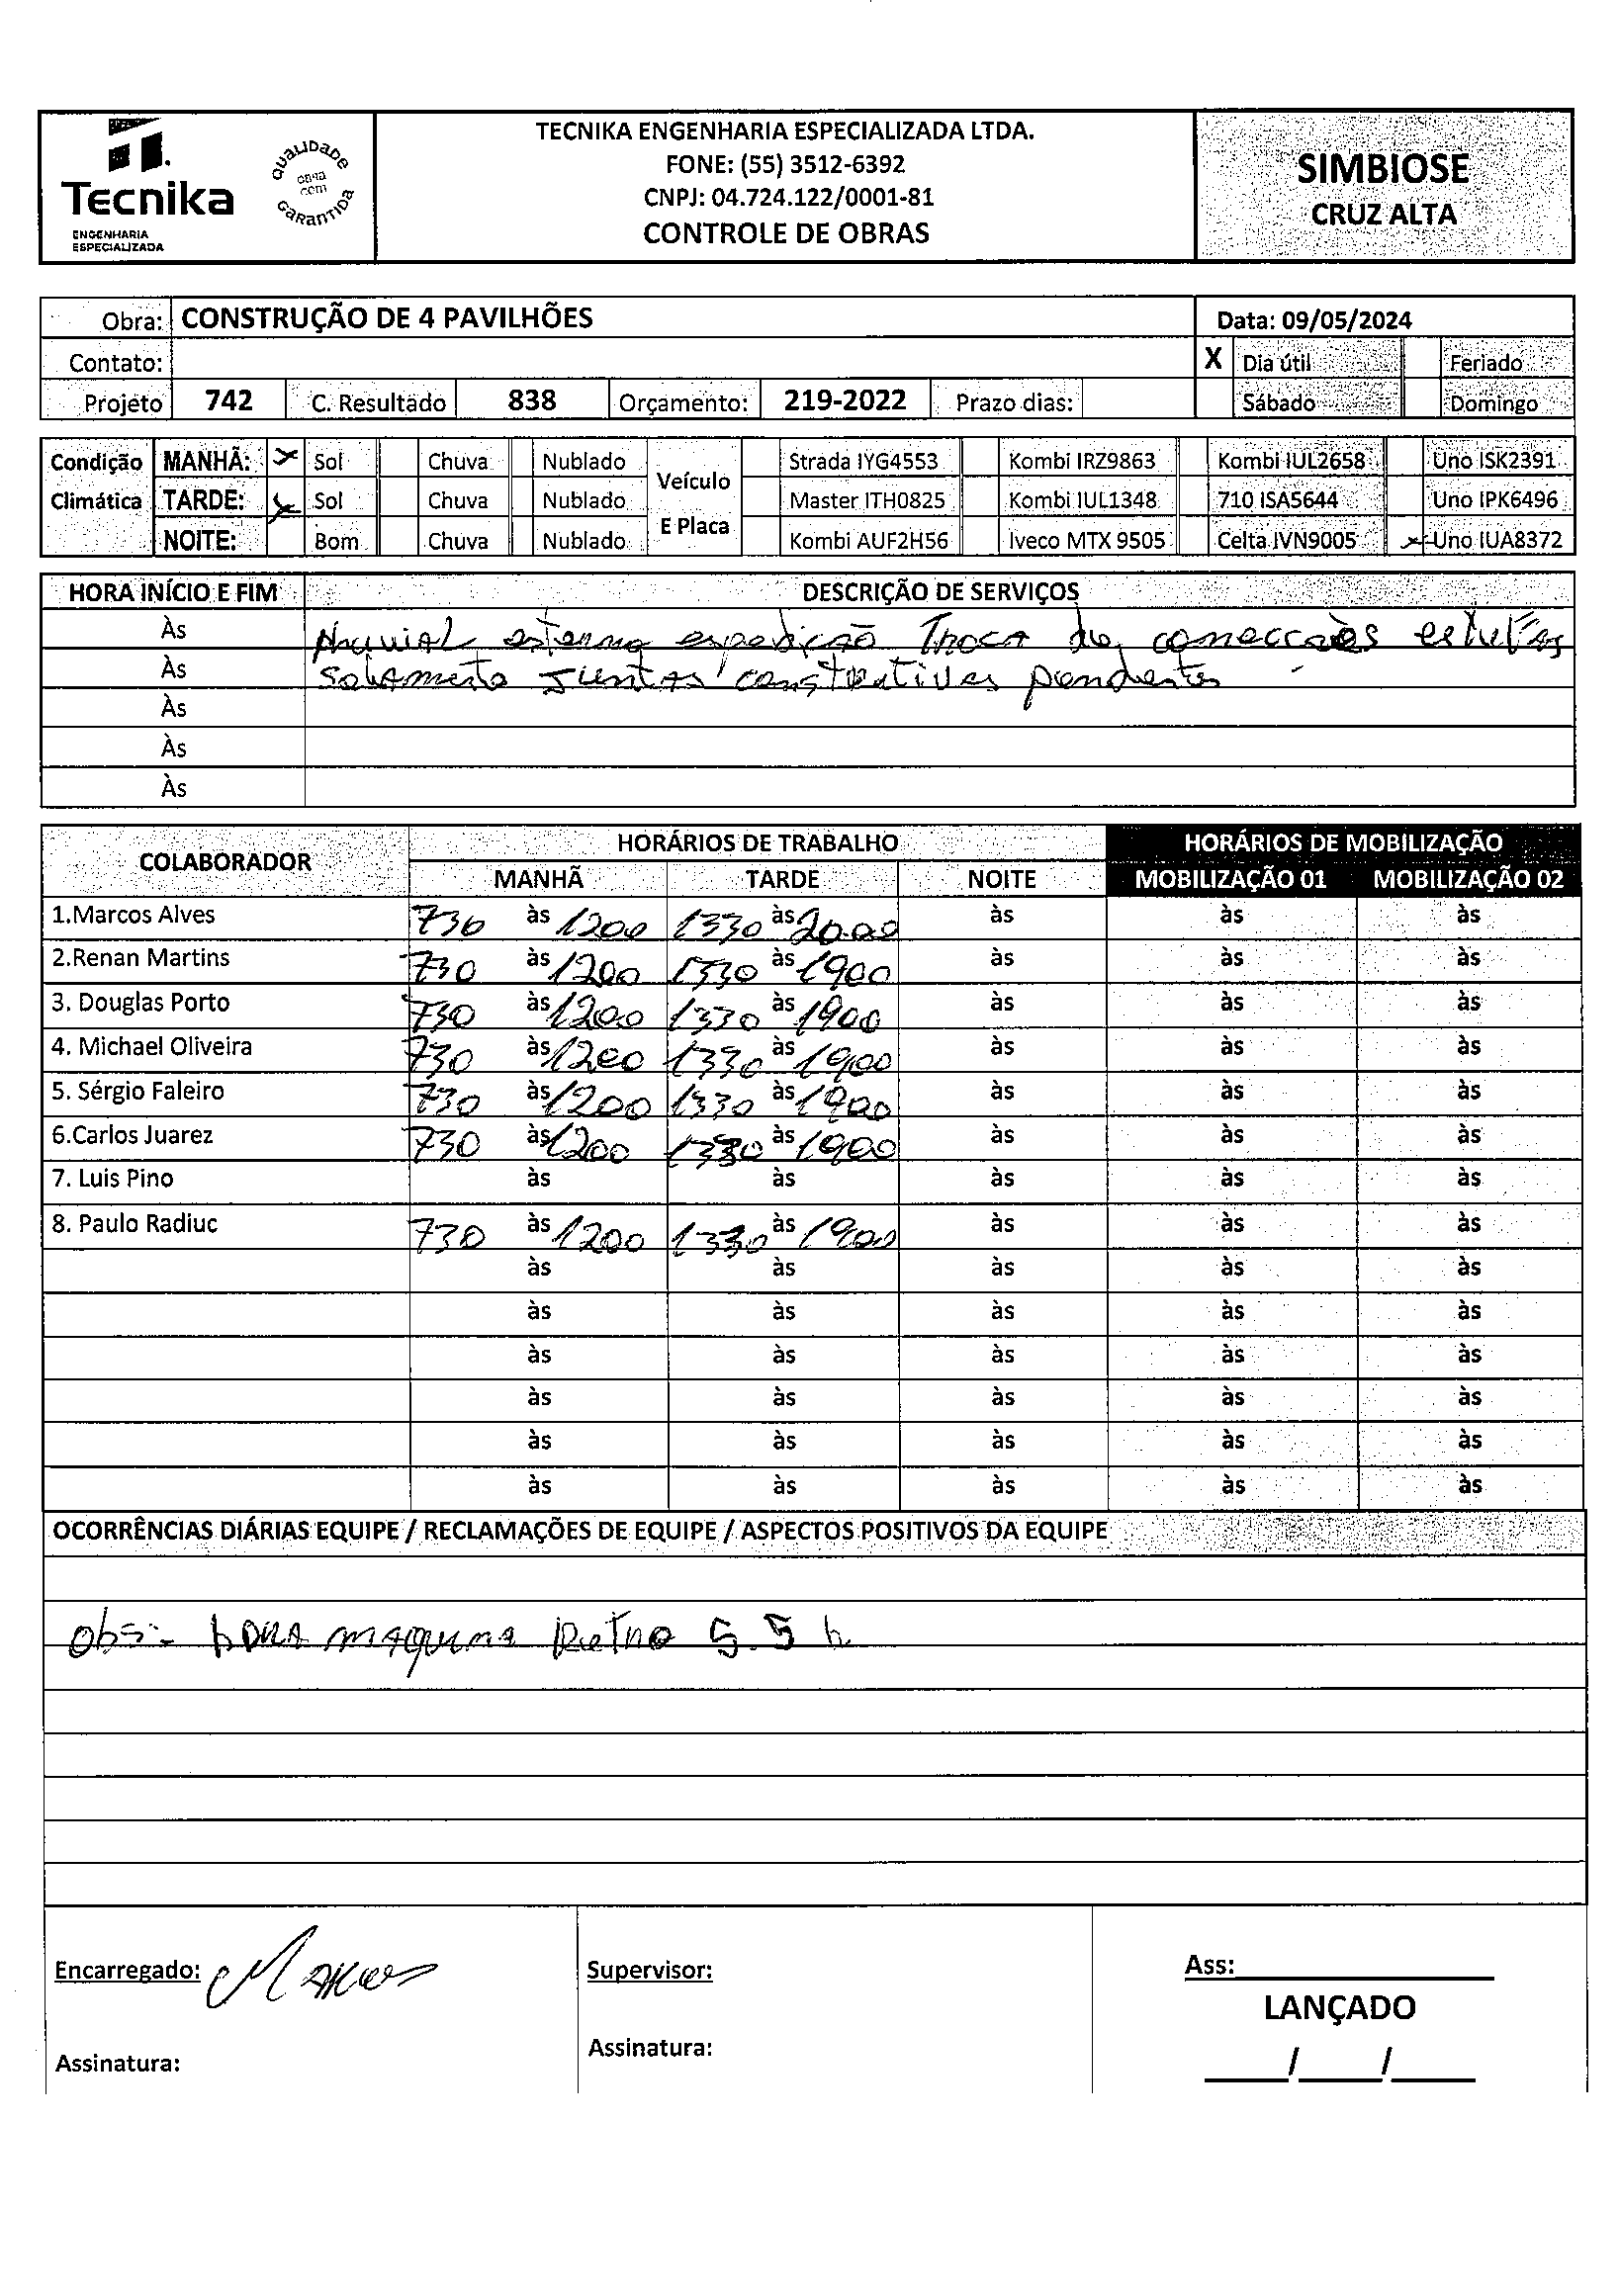 Tecnika
ENGENHARIA
ESPECIALIZADA
QUALIDADE
OBRA
COM
GARANTIDA
TECNIKA ENGENHARIA ESPECIALIZADA LTDA.
FONE: (55) 3512-6392
CNPJ: 04.724.122/0001-81
CONTROLE DE OBRAS
SIMBIOSE
CRUZ ALTA
Obra: CONSTRUÇÃO DE 4 PAVILHÕES Data: 09/05/2024
Contato: X Dia útil Feriado
Projeto 742 C. Resultado 838 Orçamento: 219-2022 Prazo dias: Sábado Domingo
Condição Climática Veículo E Placa
MANHÃ: X Sol Chuva Nublado Strada IYG4553 Kombi IRZ9863 Kombi IUL2658 Uno ISK2391
TARDE: X Sol Chuva Nublado Master ITH0825 Kombi IUL1348 710 ISA5644 Uno IPK6496
NOITE: Bom Chuva Nublado Kombi AUF2H56 Iveco MTX 9505 Celta IVN9005 X Uno IUA8372
HORA INÍCIO E FIM DESCRIÇÃO DE SERVIÇOS
Às pluvial externo expedição Troca de coneccões
Às juntas construtivas pendentes
Às
Às
Às
COLABORADOR HORÁRIOS DE TRABALHO HORÁRIOS DE MOBILIZAÇÃO
MANHÃ TARDE NOITE MOBILIZAÇÃO 01 MOBILIZAÇÃO 02
1.Marcos Alves 730 às 1200 1330 às 20.00 às às às
2.Renan Martins 730 às 1200 1330 às 1900 às às às
3. Douglas Porto 730 às 1200 1330 às 1900 às às às
4. Michael Oliveira 730 às 1200 1330 às 1900 às às às
5. Sérgio Faleiro 730 às 1200 1330 às 1900 às às às
6.Carlos Juarez 730 às 1200 1330 às 1900 às às às
7. Luis Pino às às às às às
8. Paulo Radiuc 730 às 1200 1330 às 1900 às às às
às às às às às
às às às às às
às às às às às
às às às às às
às às às às às
às às às às às
OCORRÊNCIAS DIÁRIAS EQUIPE / RECLAMAÇÕES DE EQUIPE / ASPECTOS POSITIVOS DA EQUIPE
obs:- hora maquina Retro 5.5 h
Encarregado: Marcos Supervisor: Ass:
LANÇADO
Assinatura: Assinatura: / /